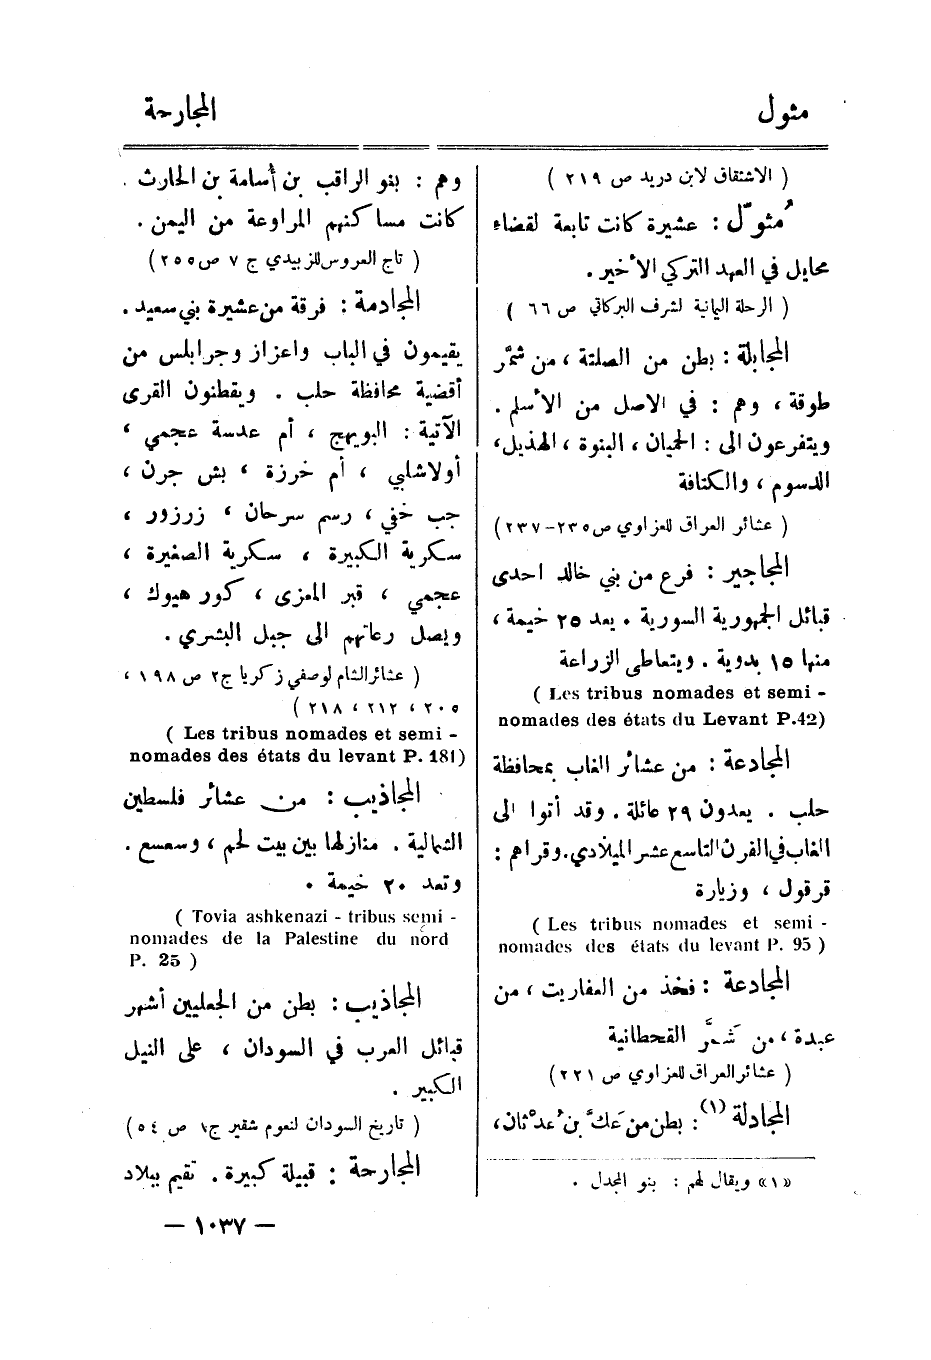 مثول
المجارحة
( الاشتقاق لابن دريد ص ٢١٩ )
مُثوّل : عشيرة كانت تابعة لقضاء
محايل في العهد التركي الأخير .
( الرحلة اليمانية لشرف البركاتي ص ٦٦ )
المجابلة : بطن من الصلتة ، من شمَّر
طوقة ، وهم : في الاصل من الأسلم .
ويتفرعون الى : الحميان ، البنوة ، الهذيل ،
الدسوم ، والكتافة
( عشائر العراق للعزاوي ص ٢٣٥-٢٣٧ )
المجاجير : فرع من بني خالد احدى
قبائل الجمهورية السورية . يعد ٢٥ خيمة ،
منها ١٥ بدوية . ويتعاطى الزراعة
( Les tribus nomades et semi -
nomades des états du Levant P.42)
المجادعة : من عشائر الغاب بمحافظة
حلب . يعدون ٢٩ عائلة . وقد أتوا الى
الغاب في القرن التاسع عشر الميلادي . وقراهم :
قرقول ، وزيارة
( Les tribus nomades et semi -
nomades des états du levant P. 95 )
المجادعة : فخذ من العفاريت ، من
عبدة ، من شَمَّر القحطانية
( عشائر العراق للعزاوي ص ٢٢١ )
المجادلة (١) : بطن من عَكّ بن عُدْثان ،
«١» ويقال لهم : بنو المجدل .
وهم : بنو الراقب بن أُسامة بن الحارث .
كانت مساكنهم المراوعة من اليمن .
( تاج العروس للزبيدي ج ٧ ص ٢٥٥ )
المجادمة : فرقة من عشيرة بني سعيد .
يقيمون في الباب واعزاز وجرابلس من
أقضية محافظة حلب . ويقطنون القرى
الآتية : البويهج ، أم عدسة عجمي ،
أولاشلبي ، أم خرزة ، بش جرن ،
جب خفي ، رسم سرحان ، زرزور ،
سكرية الكبيرة ، سكرية الصغيرة ،
عجمي ، قبر المعزى ، كور هيوك ،
ويصل رعاتهم الى جبل البشري .
( عشائر الشام لوصفي زكريا ج٢ ص ١٩٨ ،
٢٠٥ ، ٢١٢ ، ٢١٨ )
( Les tribus nomades et semi -
nomades des états du levant P. 181)
المجاذيب : من عشائر فلسطين
الشمالية . منازلها بين بيت لحم ، وسعسع .
وتعد ٢٠ خيمة .
( Tovia ashkenazi - tribus semi -
nomades de la Palestine du nord
P. 25 )
المجاذيب : بطن من الجعليين أشهر
قبائل العرب في السودان ، على النيل
الكبير .
( تاريخ السودان لنعوم شقير ج١ ص ٥٤ )
المجارحة : قبيلة كبيرة . تقيم ببلاد
— ١٠٣٧ —